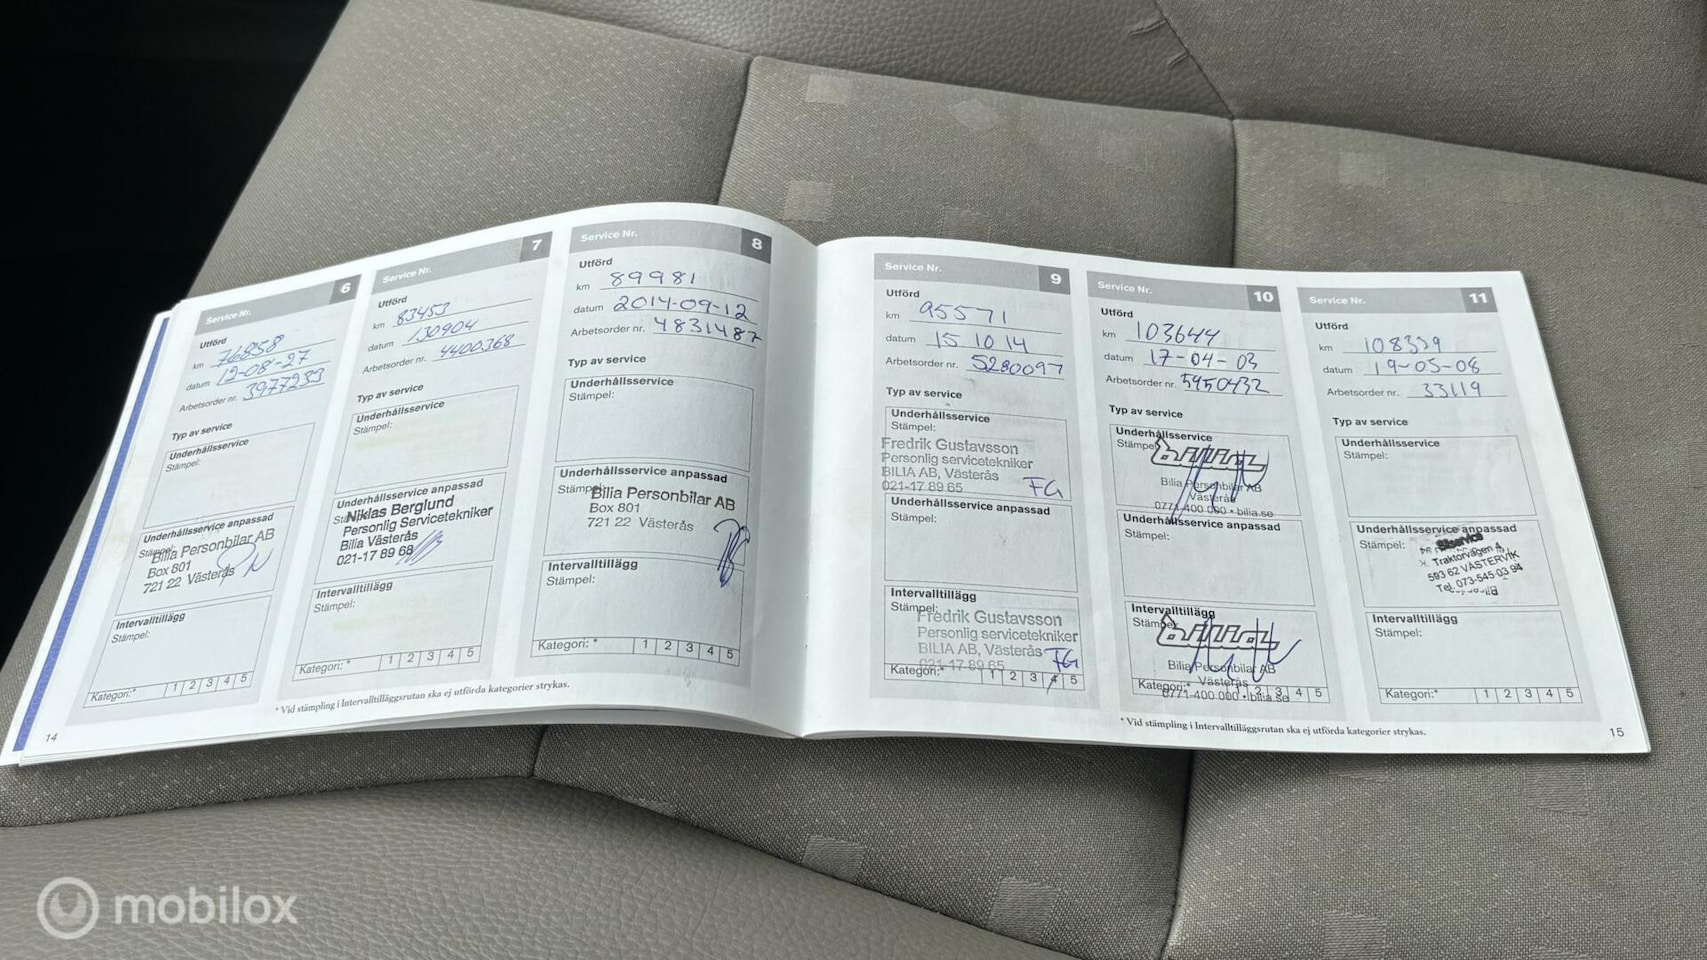 Service Nr. 6
Utförd
km 76858
datum 12-08-27
Arbetsorder nr. 3977233
Typ av service
Underhållsservice
Stämpel:
Underhållsservice anpassad
Stämpel:
Bilia Personbilar AB
Box 801
721 22 Västerås
Intervalltillägg
Stämpel:
Kategori:* 1 2 3 4 5
14
Service Nr. 7
Utförd
km 83453
datum 130904
Arbetsorder nr. 4400368
Typ av service
Underhållsservice
Stämpel:
Underhållsservice anpassad
Niklas Berglund
Personlig Servicetekniker
Bilia Västerås
021-17 89 68
Intervalltillägg
Stämpel:
Kategori:* 1 2 3 4 5
Service Nr. 8
Utförd
km 89981
datum 2014-09-12
Arbetsorder nr. 4831487
Typ av service
Underhållsservice
Stämpel:
Underhållsservice anpassad
Stämpel:
Bilia Personbilar AB
Box 801
721 22 Västerås
Intervalltillägg
Stämpel:
Kategori:* 1 2 3 4 5
* Vid stämpling i Intervalltilläggsrutan ska ej utförda kategorier strykas.
Service Nr. 9
Utförd
km 95571
datum 15 10 14
Arbetsorder nr. 5280097
Typ av service
Underhållsservice
Stämpel:
Fredrik Gustavsson
Personlig servicetekniker
BILIA AB, Västerås
021-17 89 65 FG
Underhållsservice anpassad
Stämpel:
Intervalltillägg
Stämpel:
Fredrik Gustavsson
Personlig servicetekniker
BILIA AB, Västerås FG
021-17 89 65
Kategori:* 1 2 3 4 5
Service Nr. 10
Utförd
km 103644
datum 17-04-03
Arbetsorder nr. 5950432
Typ av service
Underhållsservice
Stämpel:
bilia
Bilia Personbilar AB
Västerås
0771-400 000 • bilia.se
Underhållsservice anpassad
Stämpel:
Intervalltillägg
Stämpel:
bilia
Bilia Personbilar AB
Västerås
0771-400 000 • bilia.se
Kategori:* 1 2 3 4 5
Service Nr. 11
Utförd
km 108339
datum 19-05-08
Arbetsorder nr. 33119
Typ av service
Underhållsservice
Stämpel:
Underhållsservice anpassad
Stämpel:
Traktorvägen 4
593 62 VÄSTERVIK
Tel. 073-545 03 94
Intervalltillägg
Stämpel:
Kategori:* 1 2 3 4 5
* Vid stämpling i Intervalltilläggsrutan ska ej utförda kategorier strykas.
15
mobilox